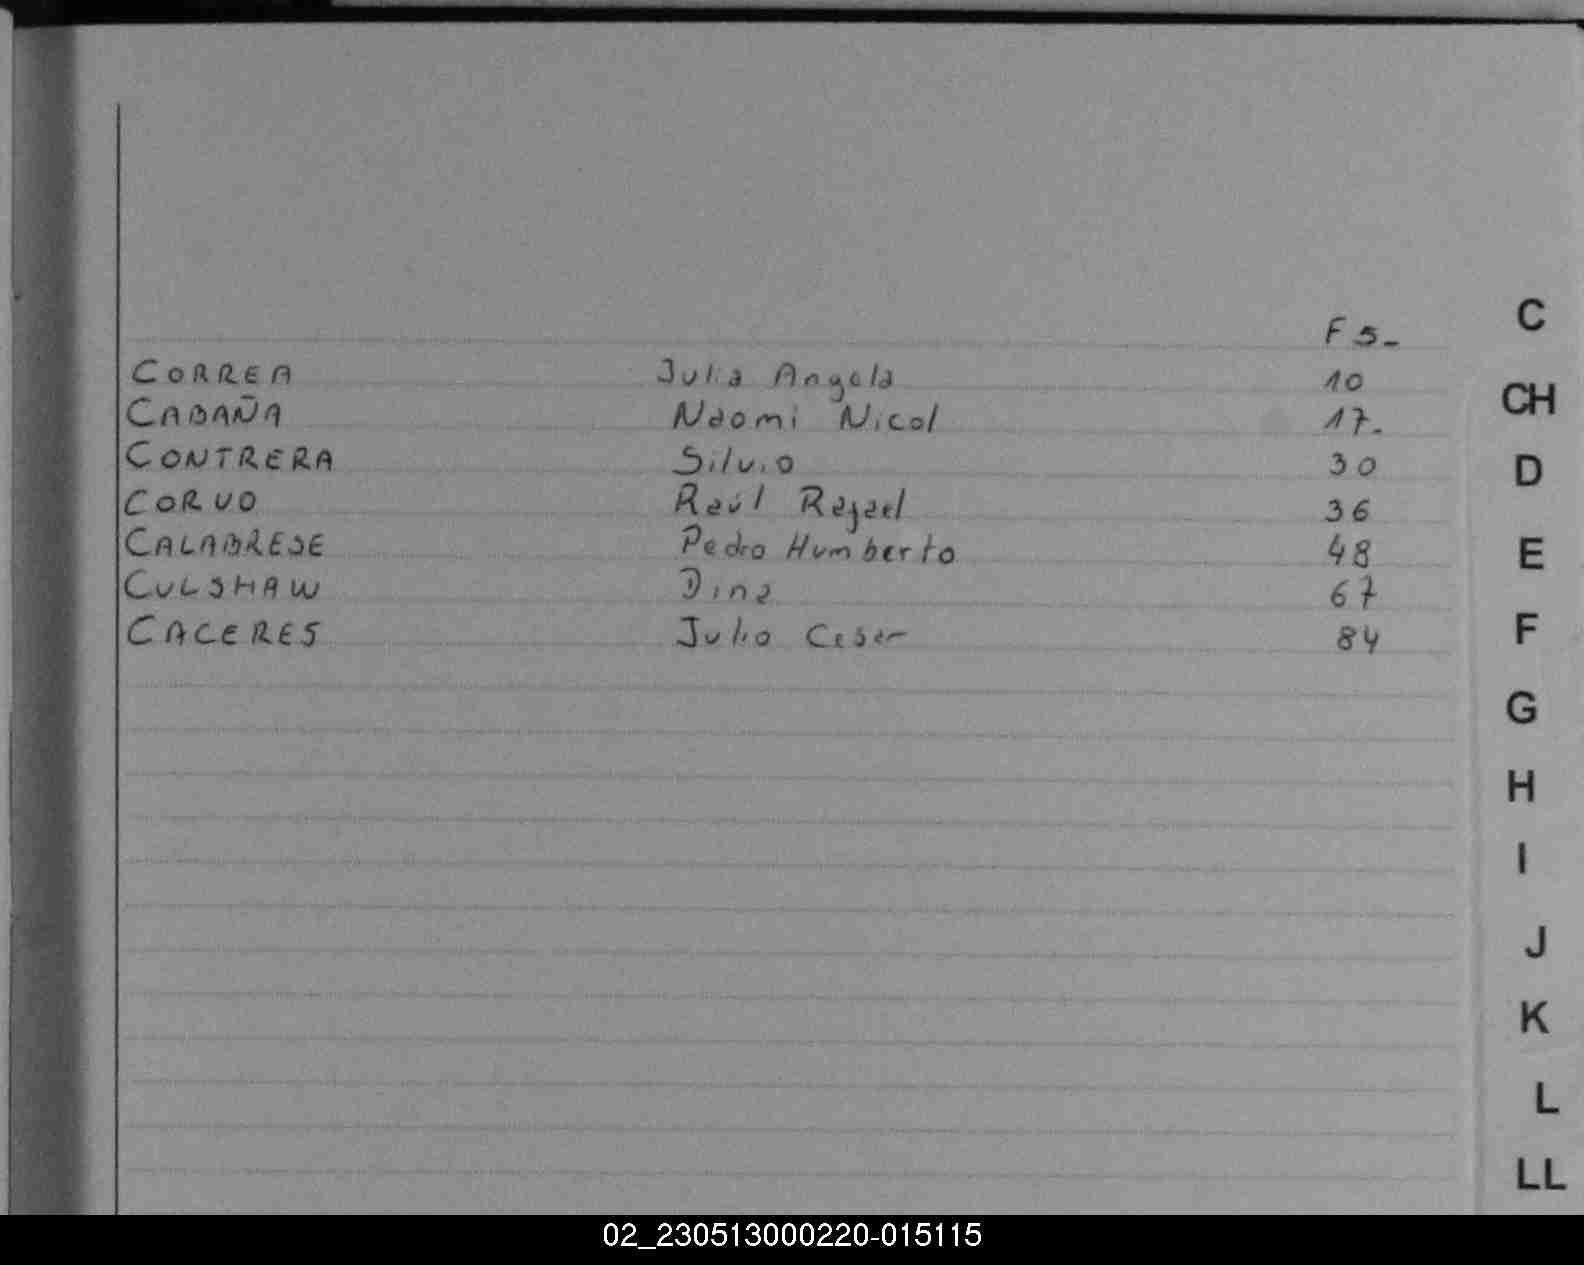 Fs-
CORREA Julia Angela 10
CABAÑA Naomi Nicol 17.
CONTRERA Silvio 30
CORVO Raúl Rafael 36
CALABRESE Pedro Humberto 48
CULSHAW Dina 67
CACERES Julio Cesar 84
C
CH
D
E
F
G
H
I
J
K
L
LL
02_230513000220-015115